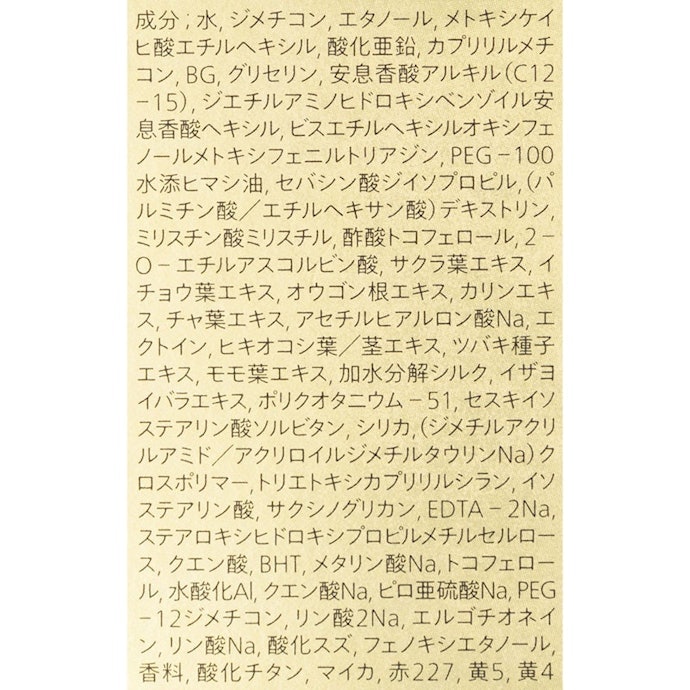 成分；水, ジメチコン, エタノール, メトキシケイ
ヒ酸エチルヘキシル, 酸化亜鉛, カプリリルメチ
コン, BG, グリセリン, 安息香酸アルキル（C12
－15）, ジエチルアミノヒドロキシベンゾイル安
息香酸ヘキシル, ビスエチルヘキシルオキシフェ
ノールメトキシフェニルトリアジン, PEG－100
水添ヒマシ油, セバシン酸ジイソプロピル,（パ
ルミチン酸／エチルヘキサン酸）デキストリン,
ミリスチン酸ミリスチル, 酢酸トコフェロール, 2－
O－エチルアスコルビン酸, サクラ葉エキス, イ
チョウ葉エキス, オウゴン根エキス, カリンエキ
ス, チャ葉エキス, アセチルヒアルロン酸Na, エ
クトイン, ヒキオコシ葉／茎エキス, ツバキ種子
エキス, モモ葉エキス, 加水分解シルク, イザヨ
イバラエキス, ポリクオタニウム－51, セスキイソ
ステアリン酸ソルビタン, シリカ,（ジメチルアクリ
ルアミド／アクリロイルジメチルタウリンNa）ク
ロスポリマー, トリエトキシカプリリルシラン, イソ
ステアリン酸, サクシノグリカン, EDTA－2Na,
ステアロキシヒドロキシプロピルメチルセルロー
ス, クエン酸, BHT, メタリン酸Na, トコフェロー
ル, 水酸化Al, クエン酸Na, ピロ亜硫酸Na, PEG
－12ジメチコン, リン酸2Na, エルゴチオネイ
ン, リン酸Na, 酸化スズ, フェノキシエタノール,
香料, 酸化チタン, マイカ, 赤227, 黄5, 黄4